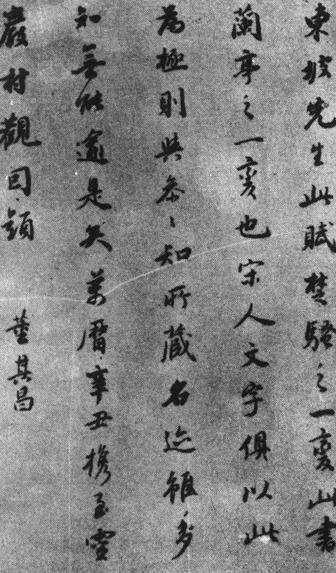 東坡先生此賦楚騷之一變此書
蘭亭之一變也宋人文字俱以此
為極則與參之知所藏名迹雖多
知無能逾是矣萬曆辛丑攜至靈
巖村觀因題 董其昌